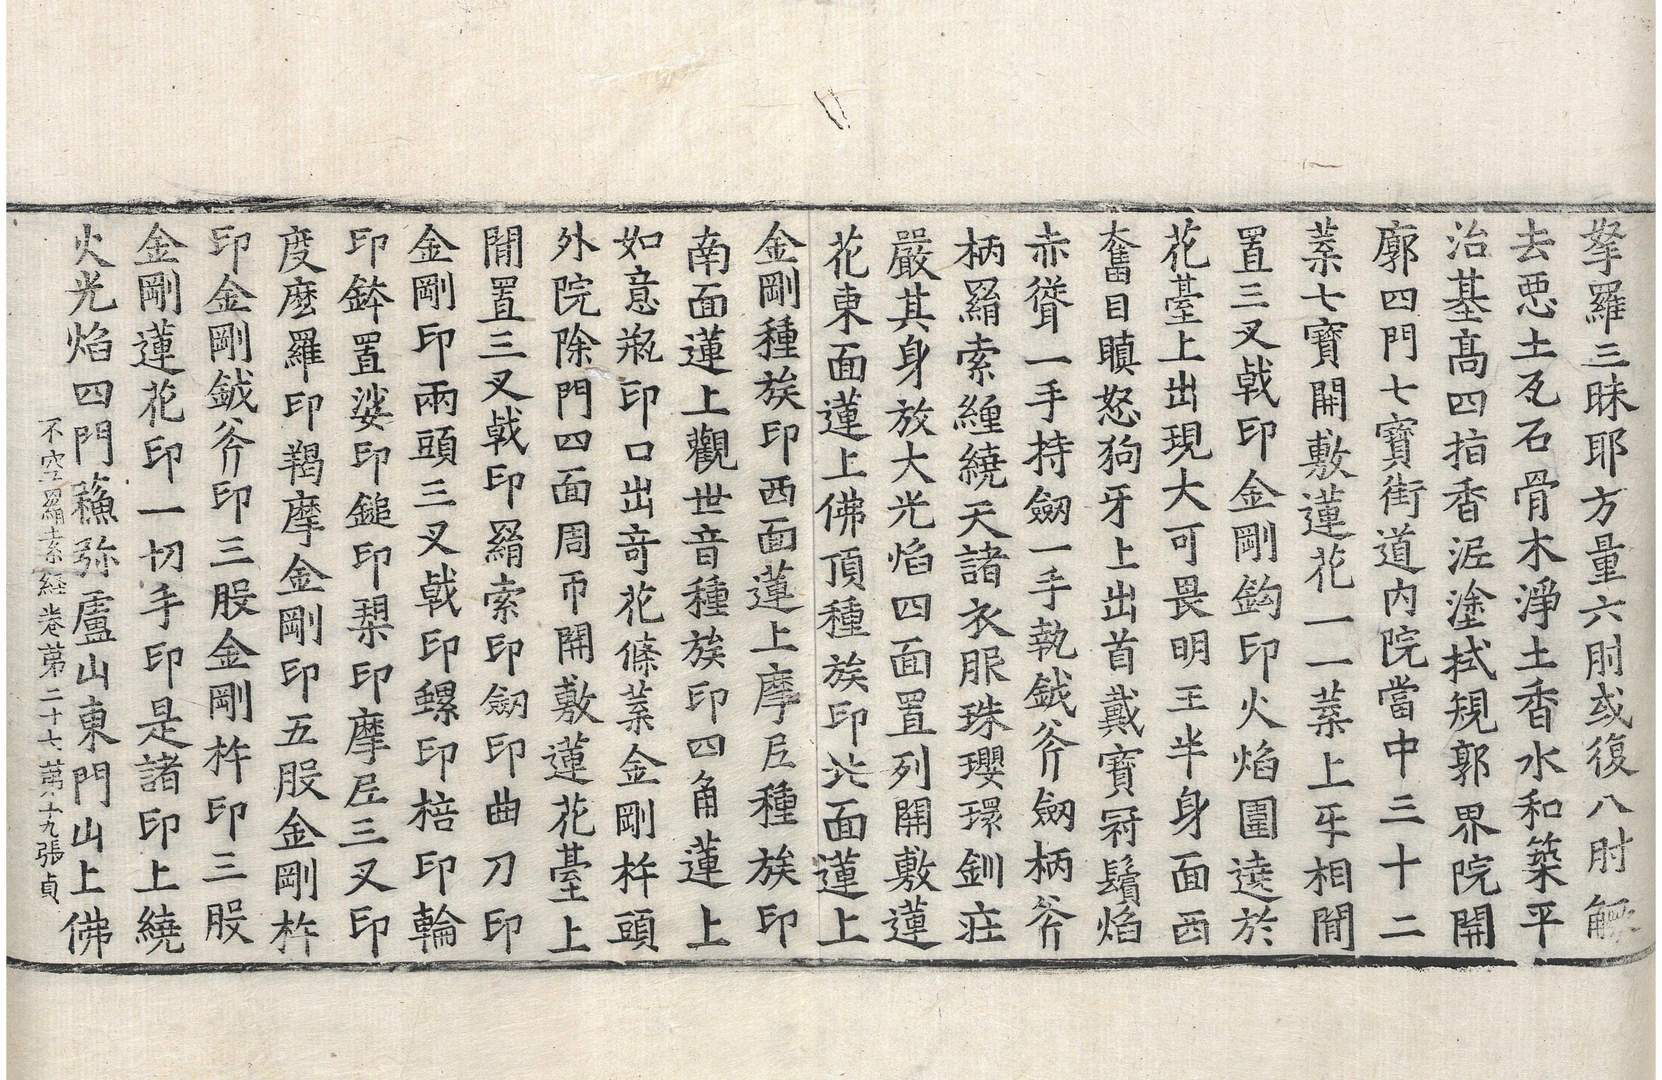 拏羅三昧耶方量六肘或復八肘觸
去惡土瓦石骨木淨土香水和築平
治基髙四指香泥塗拭規郭界院開
廓四門七寶街道內院當中三十二
葉七寶開敷蓮花一一葉上牙相閒
置三叉戟印金剛鈎印火焰圍遶於
花臺上出現大可畏明王半身面西
奮目瞋怒狗牙上出首戴寶冠鬚焰
赤聳一手持劒一手執鉞斧劒柄斧
柄羂索纏繞天諸衣服珠瓔環釧莊
嚴其身放大光焰四面置列開敷蓮
花東面蓮上佛頂種族印北面蓮上
金剛種族印西面蓮上摩尼種族印
南面蓮上觀世音種族印四角蓮上
如意瓶印口出竒花條葉金剛杵頭
外院除門四面周帀開敷蓮花臺上
閒置三叉戟印羂索印劒印曲刀印
金剛印兩頭三叉戟印螺印棓印輪
印鉢置娑印鎚印槊印摩尼三叉印
度麽羅印羯摩金剛印五股金剛杵
印金剛鉞斧印三股金剛杵印三股
金剛蓮花印一切手印是諸印上繞
火光焰四門蘓弥盧山東門山上佛
不空羂索經卷第二十七 第十九張 貞